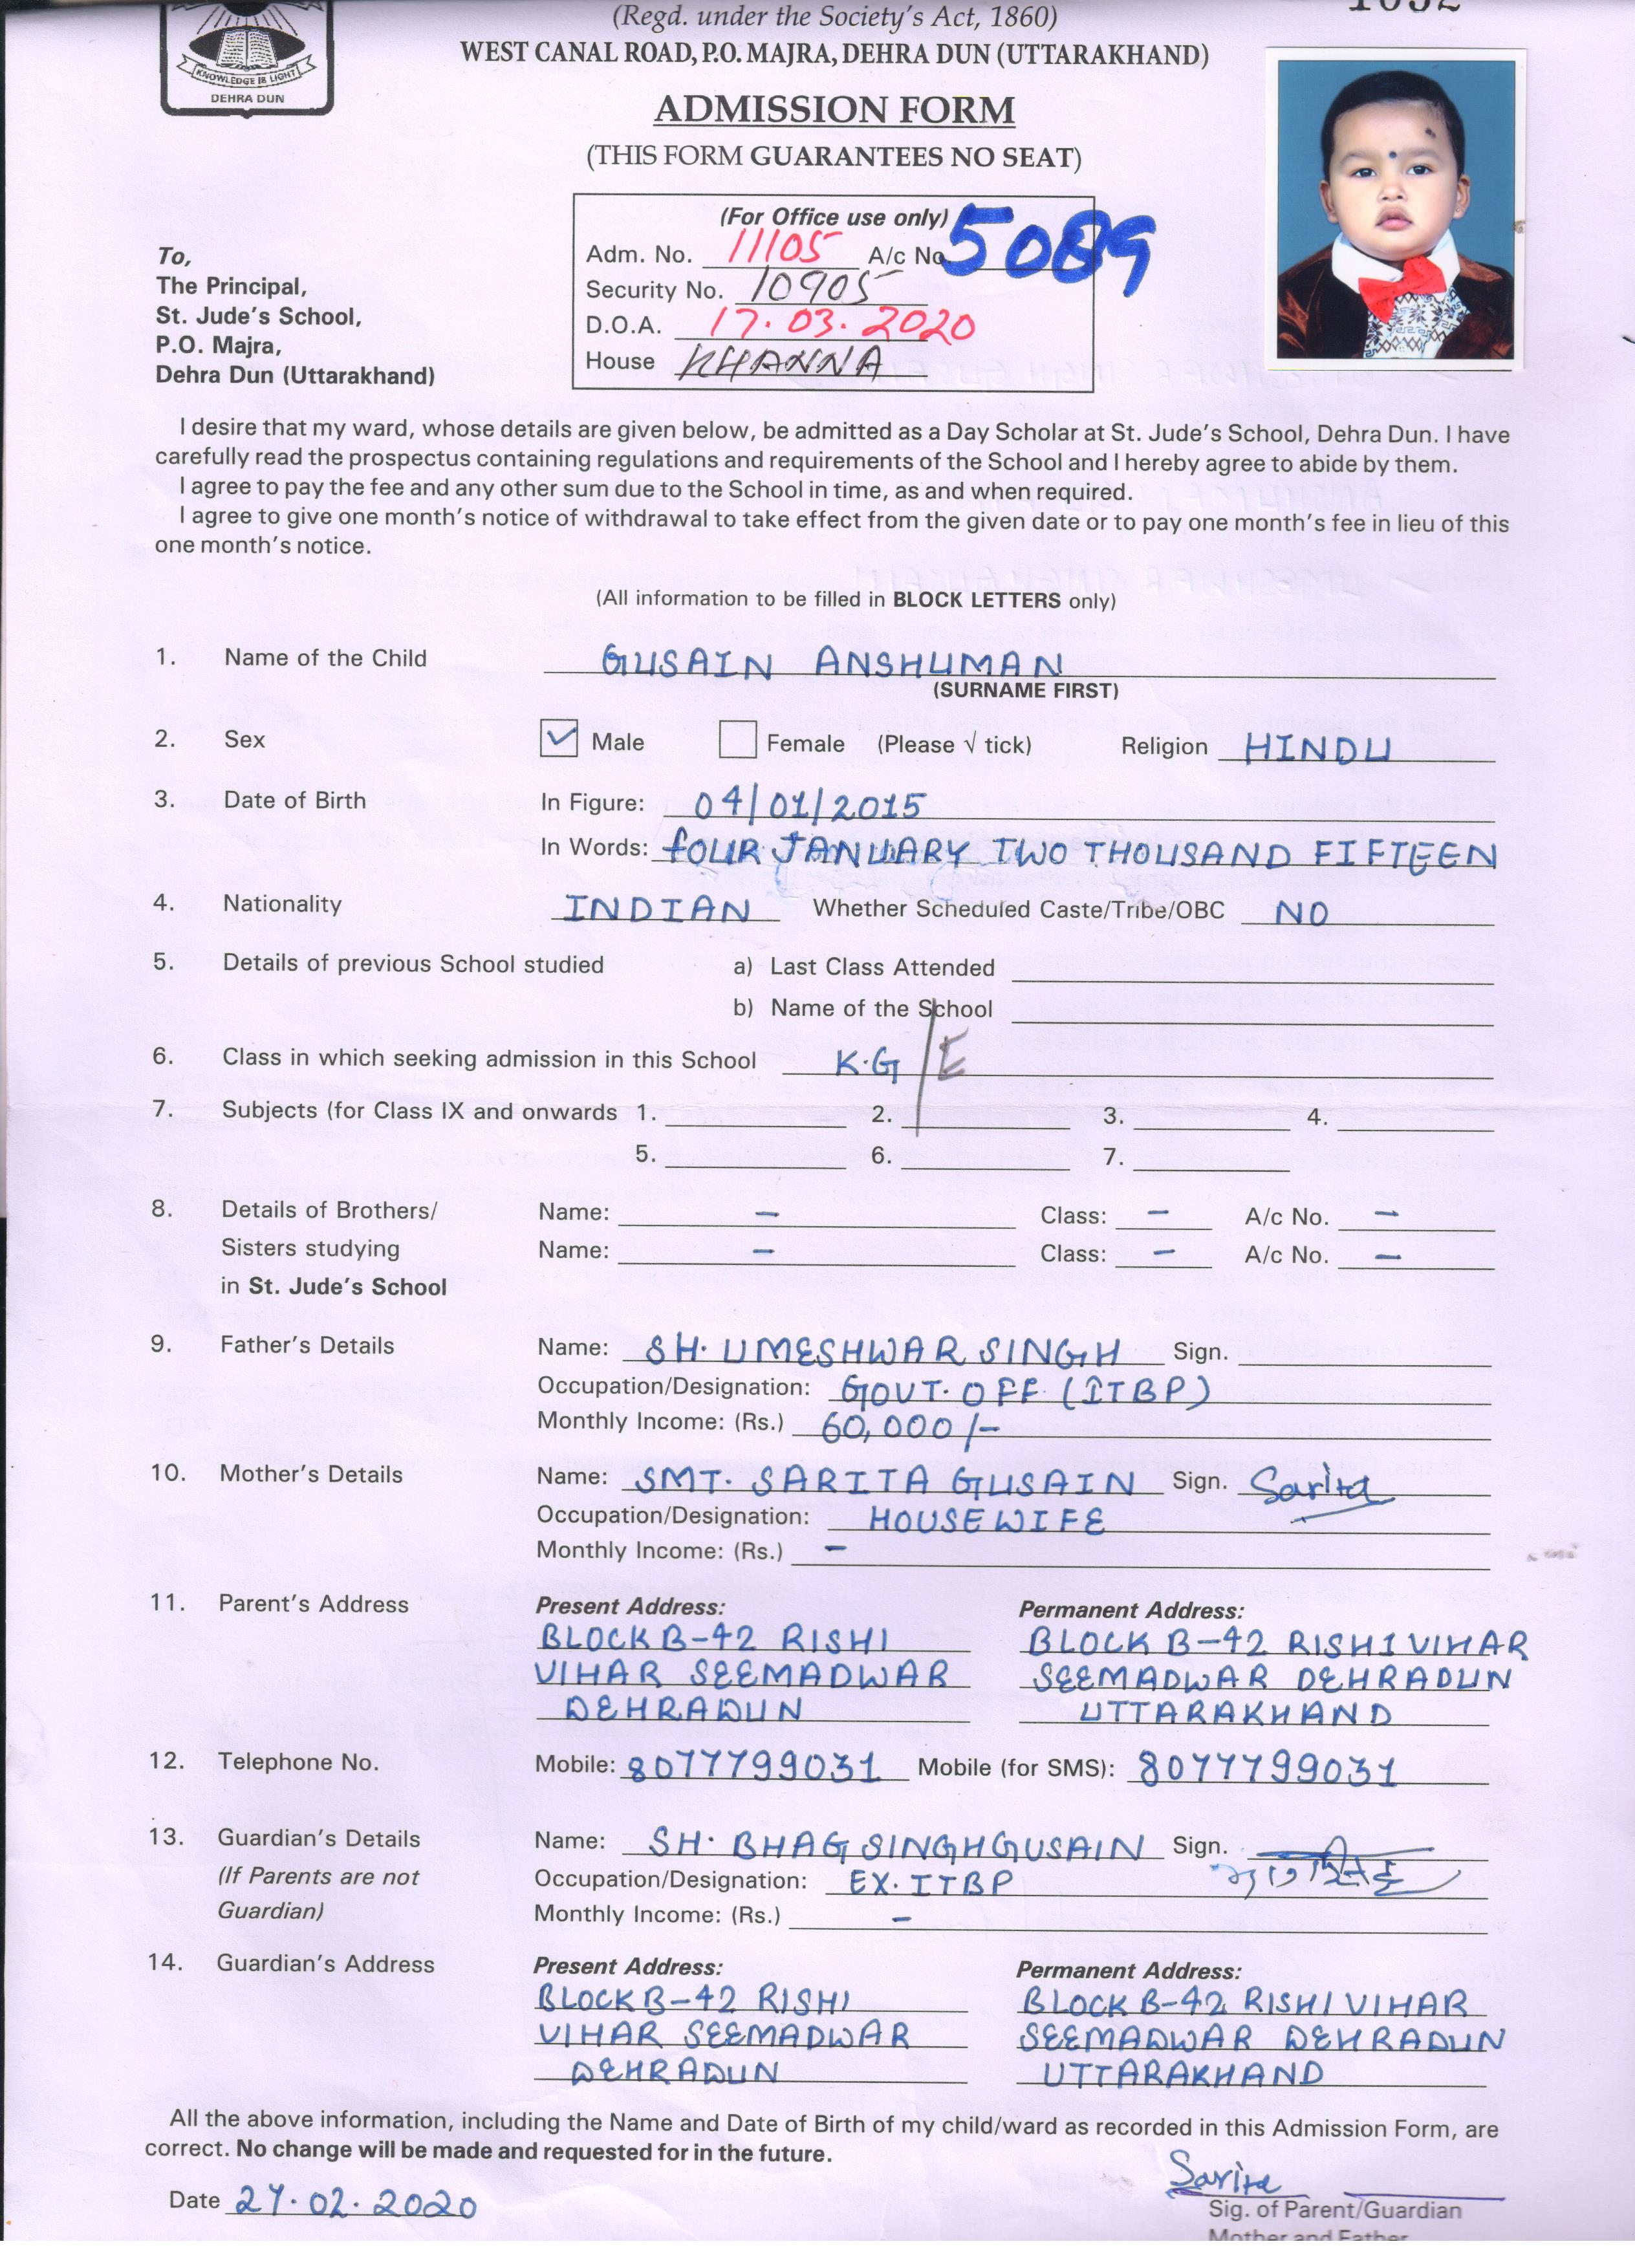 (Regd. under the Society's Act, 1860)
WEST CANAL ROAD, P.O. MAJRA, DEHRA DUN (UTTARAKHAND)
KNOWLEDGE IS LIGHT
DEHRA DUN
ADMISSION FORM
(THIS FORM GUARANTEES NO SEAT)
(For Office use only)
Adm. No. 11105 A/c No. 5089
Security No. 10905
D.O.A. 17.03.2020
House KHANNA
To,
The Principal,
St. Jude's School,
P.O. Majra,
Dehra Dun (Uttarakhand)
I desire that my ward, whose details are given below, be admitted as a Day Scholar at St. Jude's School, Dehra Dun. I have
carefully read the prospectus containing regulations and requirements of the School and I hereby agree to abide by them.
I agree to pay the fee and any other sum due to the School in time, as and when required.
I agree to give one month's notice of withdrawal to take effect from the given date or to pay one month's fee in lieu of this
one month's notice.
(All information to be filled in BLOCK LETTERS only)
1. Name of the Child GUSAIN ANSHUMAN
(SURNAME FIRST)
2. Sex ✓ Male Female (Please √ tick) Religion HINDU
3. Date of Birth In Figure: 04/01/2015
In Words: fOUR JANUARY TWO THOUSAND FIFTEEN
4. Nationality INDIAN Whether Scheduled Caste/Tribe/OBC NO
5. Details of previous School studied a) Last Class Attended
b) Name of the School
6. Class in which seeking admission in this School K.G/E
7. Subjects (for Class IX and onwards 1. 2. 3. 4.
5. 6. 7.
8. Details of Brothers/ Name: – Class: – A/c No. –
Sisters studying Name: – Class: – A/c No. –
in St. Jude's School
9. Father's Details Name: SH. UMESHWAR SINGH Sign.
Occupation/Designation: GOVT. OFF. (ITBP)
Monthly Income: (Rs.) 60,000/-
10. Mother's Details Name: SMT. SARITA GUSAIN Sign. Sarita
Occupation/Designation: HOUSEWIFE
Monthly Income: (Rs.) –
11. Parent's Address Present Address: Permanent Address:
BLOCK B-42 RISHI BLOCK B-42 RISHI VIHAR
VIHAR SEEMADWAR SEEMADWAR DEHRADUN
DEHRADUN UTTARAKHAND
12. Telephone No. Mobile: 8077799031 Mobile (for SMS): 8077799031
13. Guardian's Details Name: SH. BHAG SINGH GUSAIN Sign.
(If Parents are not Occupation/Designation: EX. ITBP
Guardian) Monthly Income: (Rs.) –
14. Guardian's Address Present Address: Permanent Address:
BLOCK B-42 RISHI BLOCK B-42 RISHI VIHAR
VIHAR SEEMADWAR SEEMADWAR DEHRADUN
DEHRADUN UTTARAKHAND
All the above information, including the Name and Date of Birth of my child/ward as recorded in this Admission Form, are
correct. No change will be made and requested for in the future.
Sarita
Date 27.02.2020 Sig. of Parent/Guardian
Mother and Father